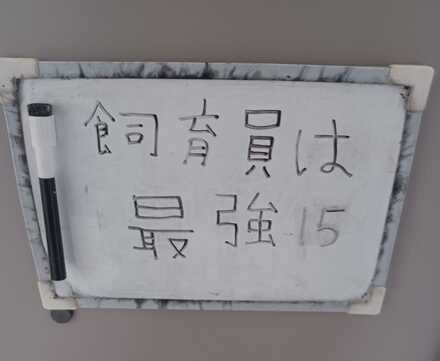 飼育員は
最強15